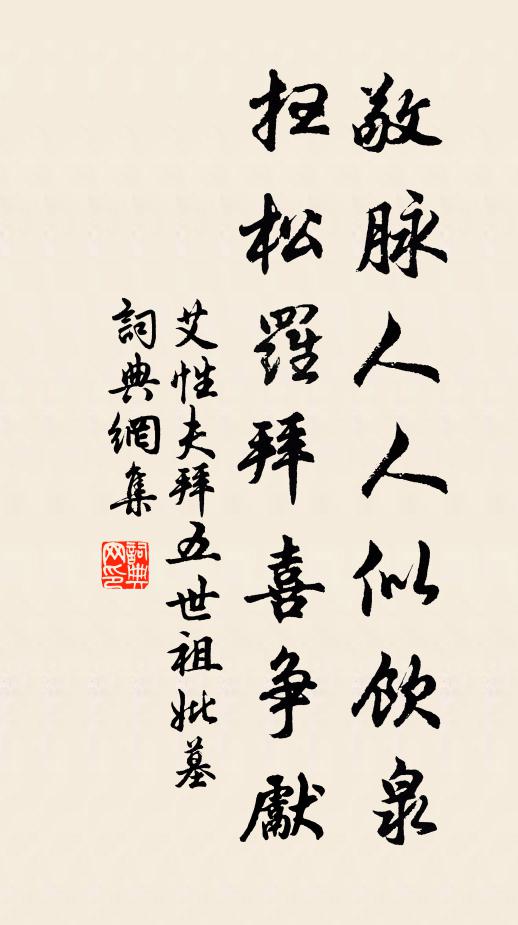 敬脉人人似飲泉
扫松羅拜喜争獻
艾性夫拜五世祖妣墓
詞典網集
詞典网印